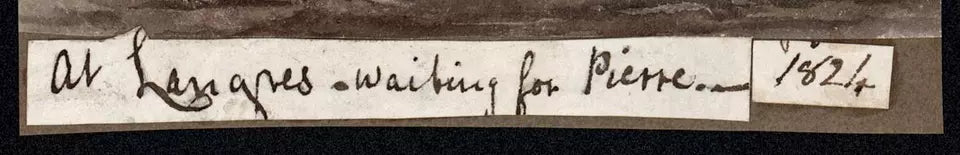 At Langres - waiting for Pierre. — 1824